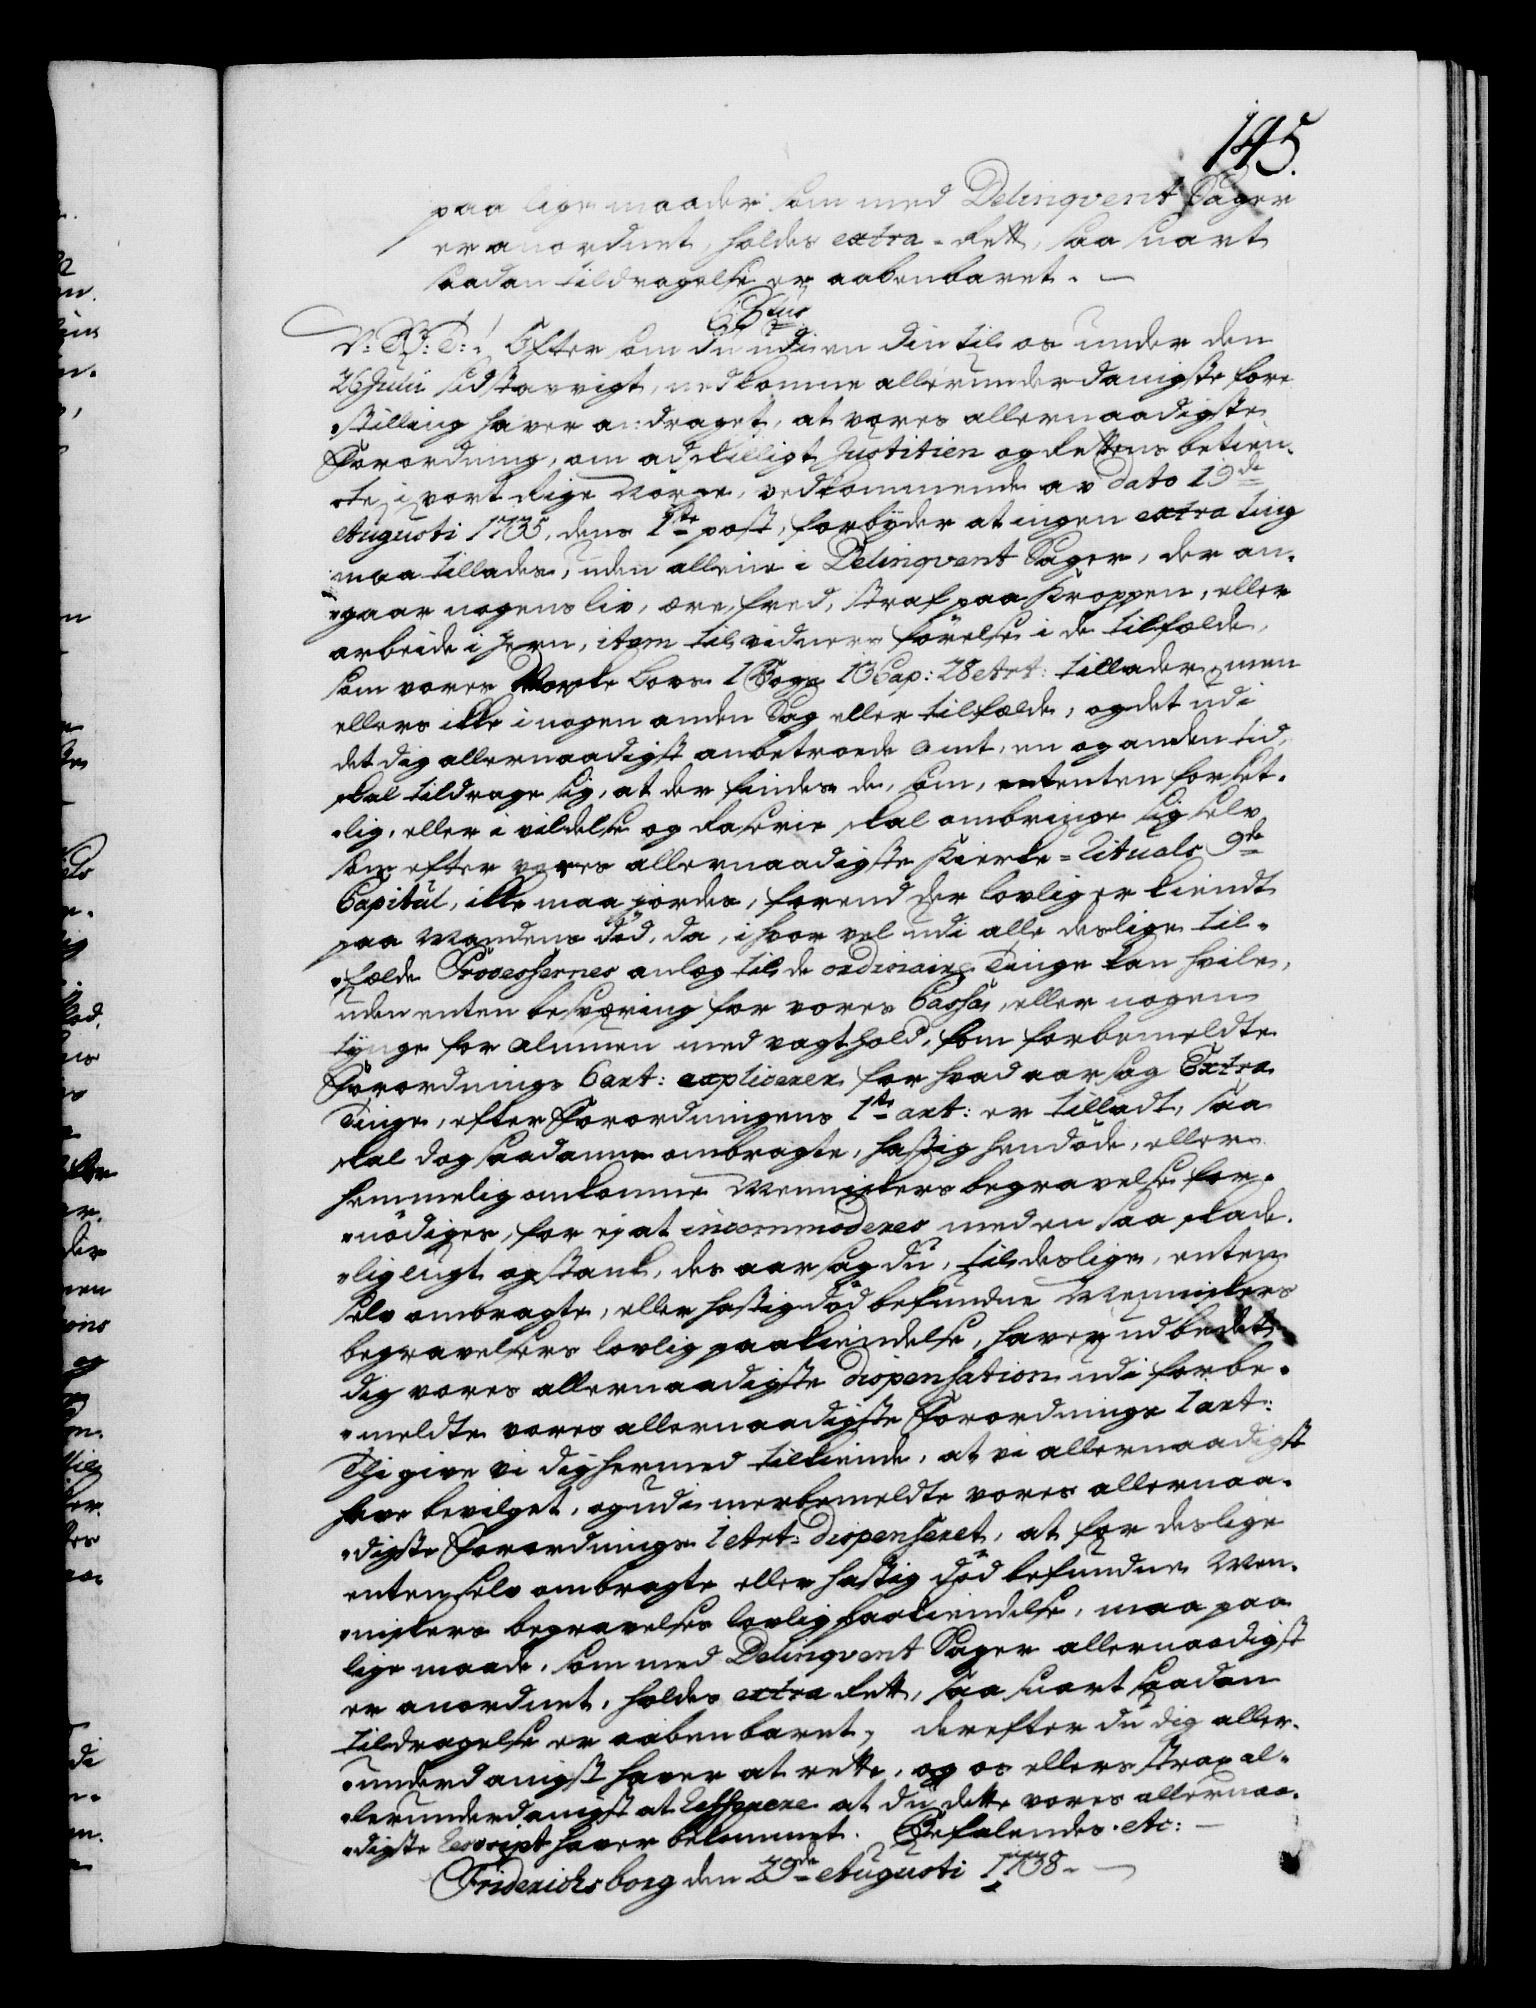 145.
paa lige maader som med Delinqvent Sager
er anordnet, holdes extra-Rett, saa snart
saadan tildragelse er aabenbaret. —
C 6tus
V: G: T: ! Efter som du udi en din til os under den
26 Julii sidst avvigt, nedkomne allerunderdanigste fore
„stilling haver andraget, at vores allernaadigste
Forordning, om adskilligt Justitien og Rettens betien-
„te, i vort Rige Norge, vedkommende av Dato 19de
Augusti 1735, dens 1ste post, forbyder at ingen extra ting
maa tillades, uden allene i Delinqvent Sager, der an-
„gaar nogens liv, ære, fred, straf paa Kroppen, eller
arbeide i Jern, item til vidners förelse i de tilfælde,
som vores Norske Lovs 1 Bogs 13 Cap: 28 Art: tillader, men
ellers ikke i nogen anden Sag eller tilfælde, og det udi
det dig allernaadigst anbetroede Amt, en og anden tid,
skal tildrage sig, at der findes de, som, ententen forset-
„lig, eller i vildelse og Raserie skal ombringe sig selv
som efter vores allernaadigste Kierke-Rituals 9de
Capitul, ikke maa jordes, forend der lovlig er kiendt
paa Mandens død, da, i hvor vel udi alle deslige til-
„fælde Processernes anlæg til de ordinaire Tinge kan hvile,
uden enten besværing for vores Cassa, eller nogen
tynge for Almuen med vagthold, som forbemeldte
Forordnings 6 art: explicerer for hvad aarsag Extra
Tinge, efter Forordningens 1ste art: er tilladt, saa
skal dog saadanne ombragte, hastig hendöde, eller
hemmelig omkomne Menniskers begravelse for-
„nödiges, for ej at incommoderes med en saa skade-
„lig lugt og stank, des aarsag du, til deslige, enten
selv ombragte, eller hastig död befundne Menniskers
begravelsers lovlig paakiendelse, haver udbedet
dig vores allernaadigste Dispensation udi forbe-
„meldte vores allernaadigste Forordnings 1 art:
Thi give vi dig hermed tilkiende, at vi allernaadigst
have bevilget, og udi merbemeldte vores allernaa-
„digste Forordnings 1 Art: dispenseret, at for deslige
enten selv ombragte eller hastig död befundne Men-
„niskers begravelses lovlig paakiendelse, maa paa
lige maade, som med Delinqvent Sager allernaadigst
er anordnet, holdes extra Rett, saa snart saadan
tildragelse er aabenbaret, derefter du dig aller-
„underdanigst haver at rette, og os ellers strax al-
„lerunderdanigst at Resserere at du dette vores allernaa-
„digste Rescript haver bekommet. Befalendes. Etc: —
Friderichsborg den 29de Augusti 1738. —